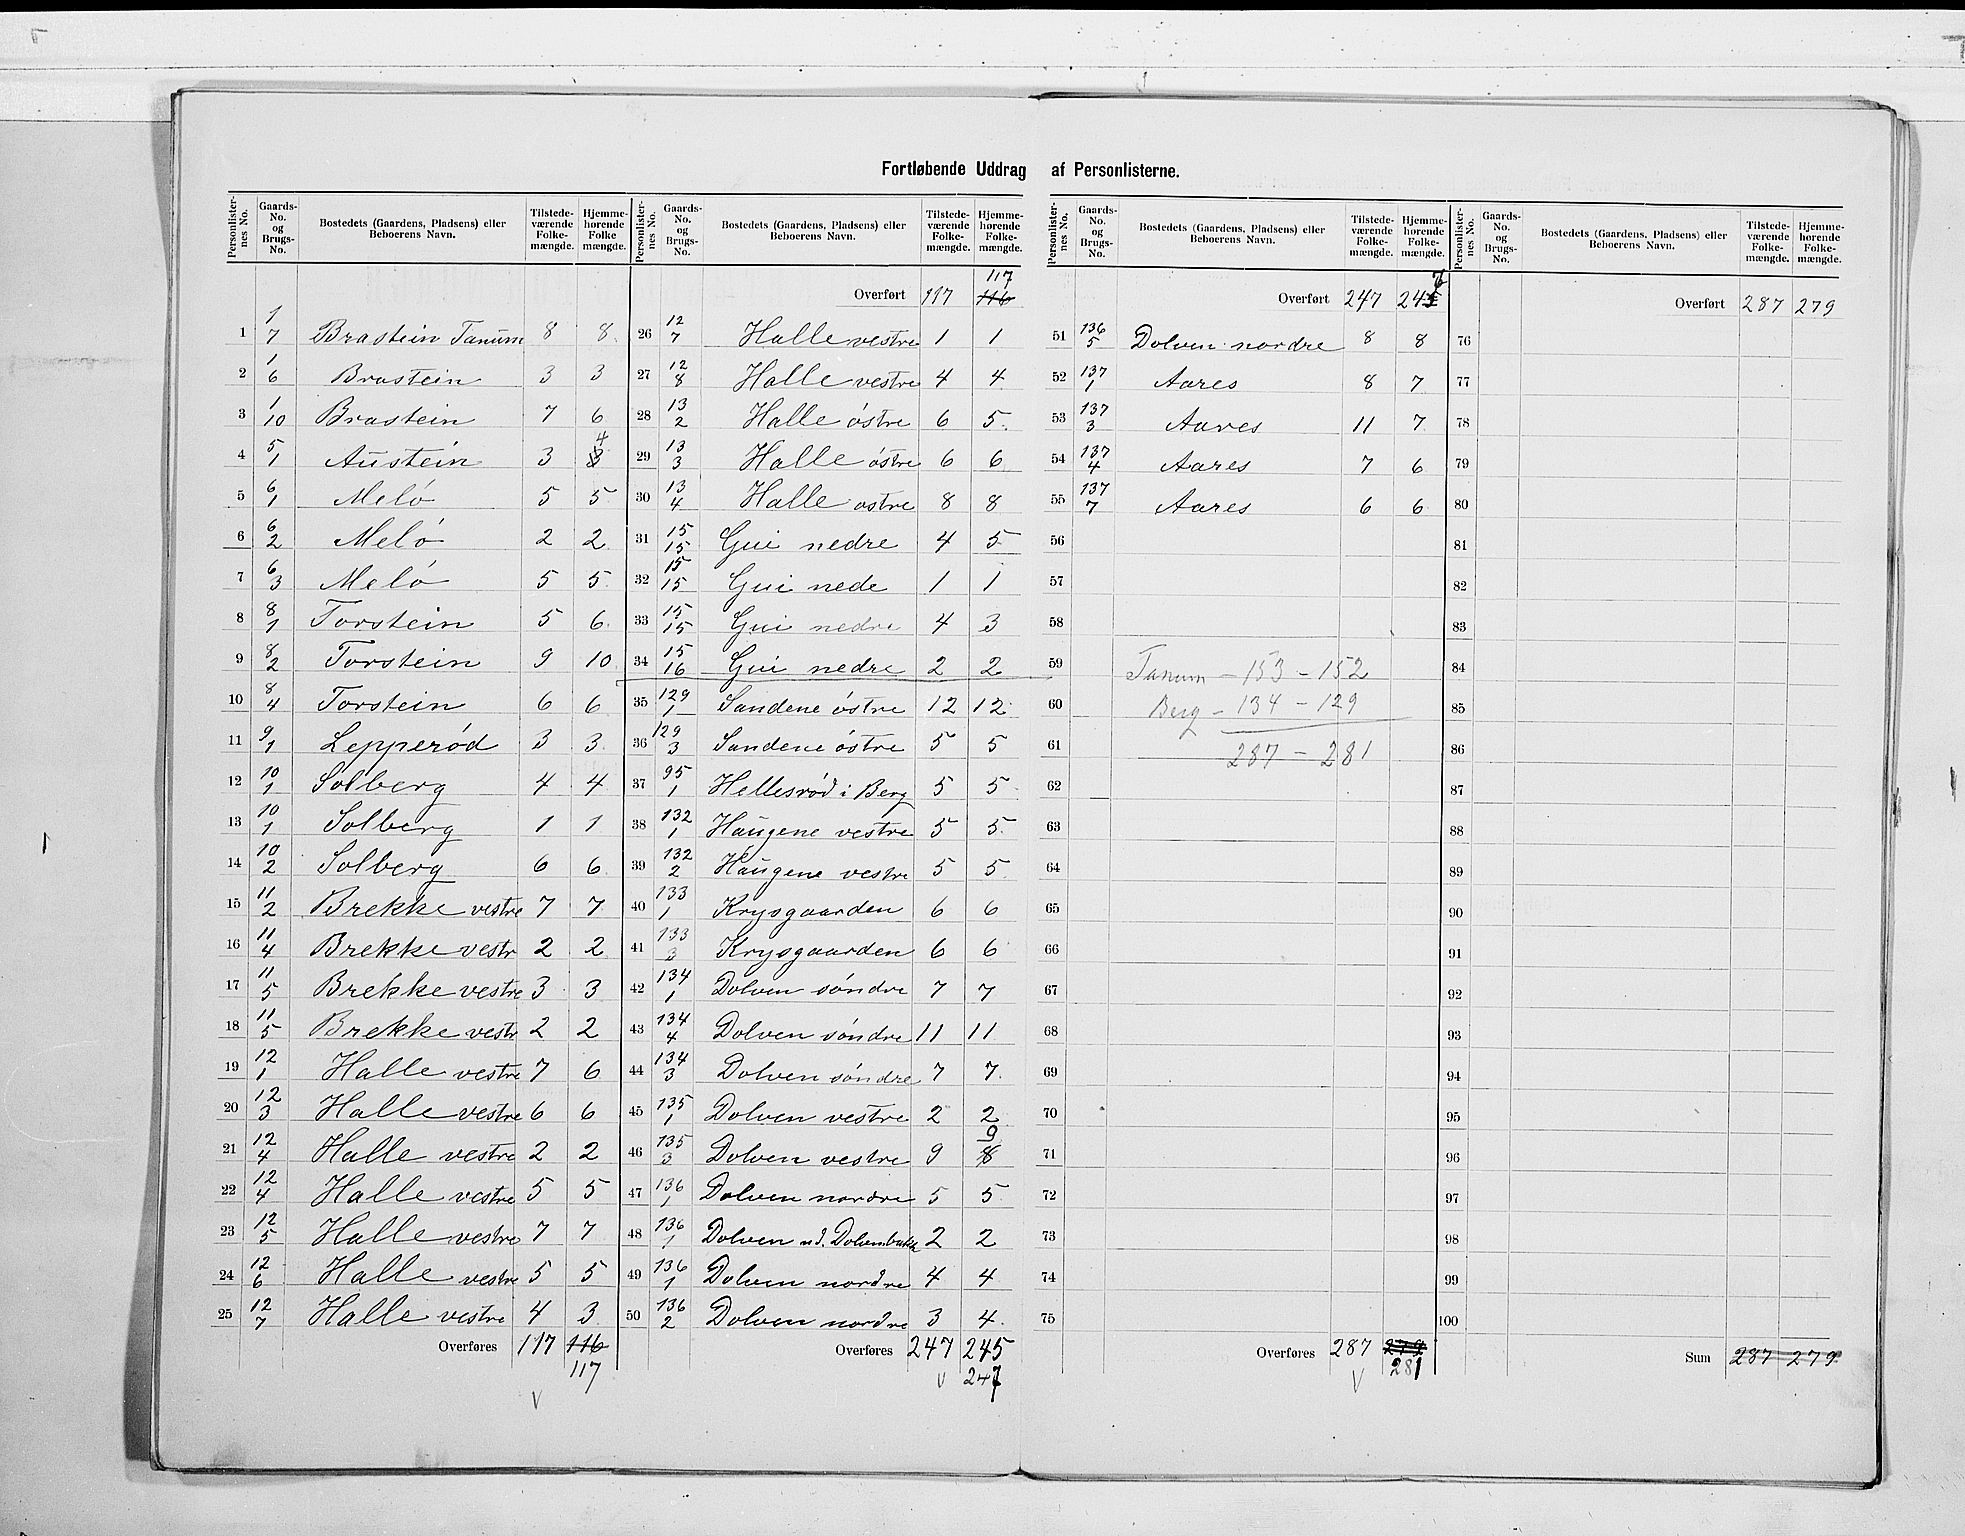 Fortløbende Uddrag af Personlisterne.
Personlisternes No. | Gaards-No. og Brugs-No. | Bostedets (Gaardens, Pladsens) eller Beboerens Navn. | Tilstedeværende Folkemængde. | Hjemmehørende Folkemængde.
1 | 1/7 | Brastein Tanum | 8 | 8
2 | 1/6 | Brastein | 3 | 3
3 | 1/10 | Brastein | 7 | 6
4 | 5/1 | Austein | 3 | 4
5 | 6/1 | Melö | 5 | 5
6 | 6/2 | Melö | 2 | 2
7 | 6/3 | Melö | 5 | 5
8 | 8/1 | Torstein | 5 | 6
9 | 8/2 | Torstein | 9 | 10
10 | 8/4 | Torstein | 6 | 6
11 | 9/1 | Lepperød | 3 | 3
12 | 10/1 | Solberg | 4 | 4
13 | 10/1 | Solberg | 1 | 1
14 | 10/2 | Solberg | 6 | 6
15 | 11/2 | Brekke vestre | 7 | 7
16 | 11/4 | Brekke vestr | 2 | 2
17 | 11/5 | Brekke vestre | 3 | 3
18 | 11/5 | Brekke vestr | 2 | 2
19 | 12/1 | Halle vestre | 7 | 6
20 | 12/3 | Halle vestre | 6 | 6
21 | 12/4 | Halle vestre | 2 | 2
22 | 12/4 | Halle vestre | 5 | 5
23 | 12/5 | Halle vestre | 7 | 7
24 | 12/6 | Halle vestre | 5 | 5
25 | 12/7 | Halle vestre | 4 | 3
Overføres 117 116
117
V
Personlisternes No. | Gaards-No. og Brugs-No. | Bostedets (Gaardens, Pladsens) eller Beboerens Navn. | Tilstedeværende Folkemængde. | Hjemmehørende Folkemængde.
117
Overført 117 116
26 | 12/7 | Halle vestre | 1 | 1
27 | 12/8 | Halle vestre | 4 | 4
28 | 13/2 | Halle östre | 6 | 5
29 | 13/3 | Halle östre | 6 | 6
30 | 13/4 | Halle ostre | 8 | 8
31 | 15/15 | Gui nedre | 4 | 5
32 | 15/15 | Gui nede | 1 | 1
33 | 15/15 | Gui nedre | 4 | 3
34 | 15/16 | Gui nedre | 2 | 2
35 | 129/1 | Sandene östre | 12 | 12
36 | 129/3 | Sandene östre | 5 | 5
37 | 95/1 | Hellesrød i Berg | 5 | 5
38 | 132/1 | Haugene vestre | 5 | 5
39 | 132/2 | Haugene vestre | 5 | 5
40 | 133/1 | Krysgaarden | 6 | 6
41 | 133/3 | Krysgaarden | 6 | 6
42 | 134/1 | Dolven söndre | 7 | 7
43 | 134/4 | Dolven söndre | 11 | 11
44 | 134/3 | Dolven söndre | 7 | 7
45 | 135/1 | Dolven vestre | 2 | 2
46 | 135/3 | Dolven vestre | 9 | 8 9
47 | 136/1 | Dolven nordre | 5 | 5
48 | 136/1 | Dolven nd. Dolvenbakk | 2 | 2
49 | 136/1 | Dolven nordre | 4 | 4
50 | 136/2 | Dolven nordre | 3 | 4
Overføres 247 245
V 247
Personlisternes No. | Gaards-No. og Brugs-No. | Bostedets (Gaardens, Pladsens) eller Beboerens Navn. | Tilstedeværende Folkemængde. | Hjemmehørende Folkemængde.
7
Overført 247 245
51 | 136/5 | Dolven nordre | 8 | 8
52 | 137/1 | Aares | 8 | 7
53 | 137/3 | Aares | 11 | 7
54 | 137/4 | Aares | 7 | 6
55 | 137/7 | Aares | 6 | 6
56
57
58
59
Tanum - 153 - 152
60
Berg - 134 - 129
61
287 - 281
62
63
64
65
66
67
68
69
70
71
72
73
74
75
Overføres 287 279
V 281
Personlisternes No. | Gaards-No. og Brugs-No. | Bostedets (Gaardens, Pladsens) eller Beboerens Navn. | Tilstedeværende Folkemængde. | Hjemmehørende Folkemængde.
Overført 287 279
76
77
78
79
80
81
82
83
84
85
86
87
88
89
90
91
92
93
94
95
96
97
98
99
100
Sum 287 279